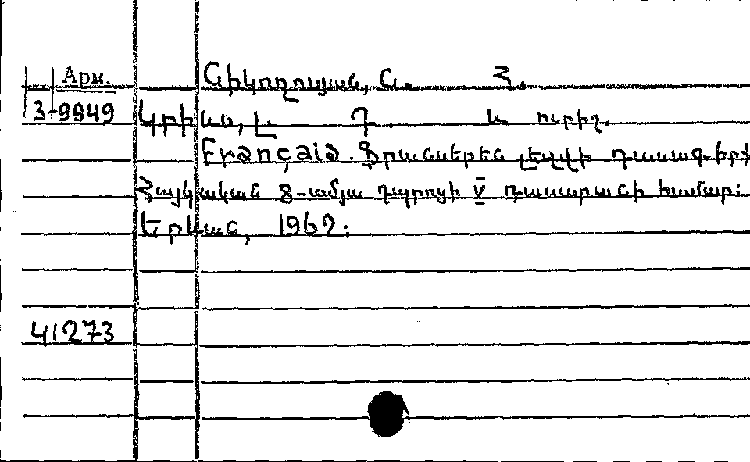 Арм.
Նիկողոսյան, Ն. Հ.
3-9849
Կրիսա, Լ. Դ. և ուրիշ.
Français. Ֆրանսերեն լեզվի դասագիրք
Հայկական 8-ամյա դպրոցի V դասարանի համար:
Երևան, 1967:
41273